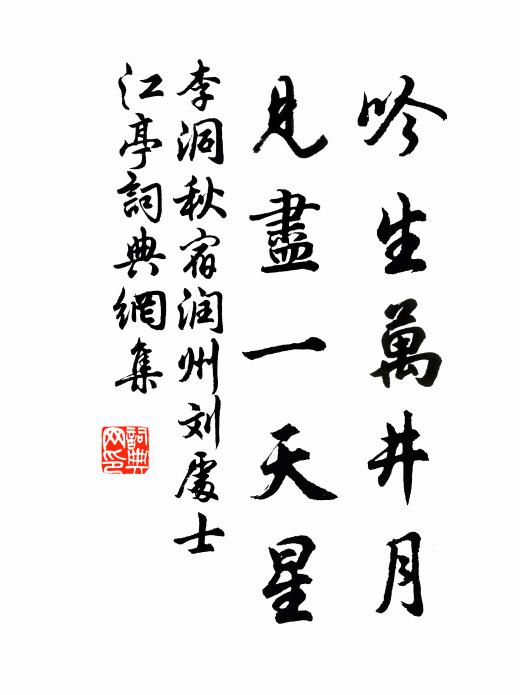 吟生萬井月
見盡一天星
李洞秋宿润州刘處士
江亭詞典網集
詞典
网印